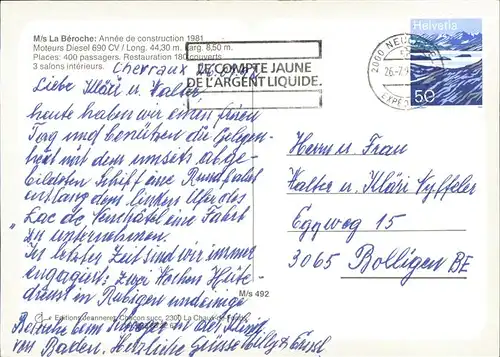 M/s La Béroche: Année de construction 1981
Moteurs Diesel 690 CV / Long. 44,30 m. larg. 8,50 m.
Places: 400 passagers. Restauration 180 couverts
3 salons intérieurs.
LE COMPTE JAUNE
DE L'ARGENT LIQUIDE.
Helvetia
50
2000 NEUCHÂTEL
26.-7.
EXPÉD
Liebe Kläri u. Walter
heute haben wir einen freien
Tag und benützen die Gelegen-
heit mit dem umseits abge-
bildeten Schiff eine Rundfahrt
entlang dem linken Ufer des
Lac de Neuchâtel eine Fahrt
zu unternehmen.
In letzter Zeit sind wir immer
engagiert: zwei Wochen Hüte-
dienst in Rubigen und einige
M/s 492
Editions Jeanneret, succ. 2300 La Chaux-de-Fonds
Besuche beim Schwager in der Klinik
von Baden. Herzliche Grüsse Willy &
Herrn u. Frau
Walter u. Kläri Nyffeler
Eggweg 15
3065 Bolligen BE